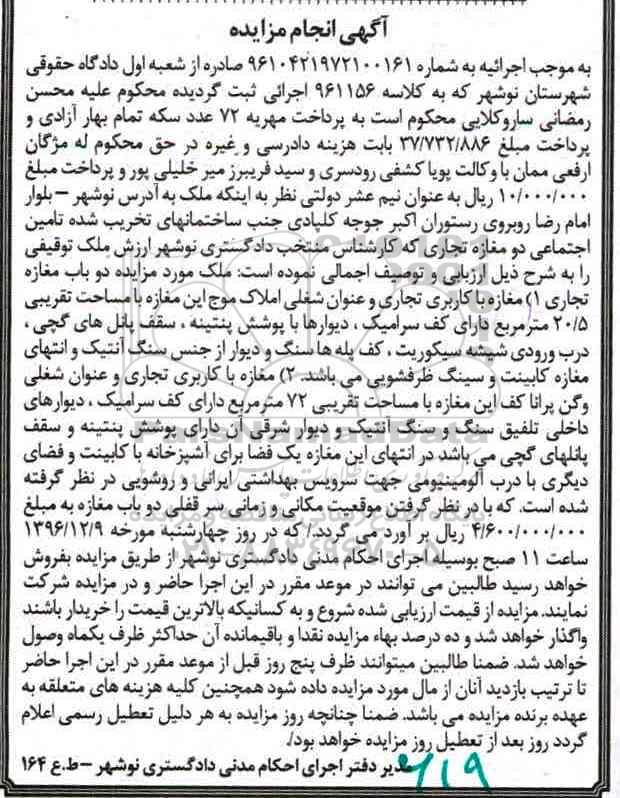 آگهی انجام مزایده
به موجب اجرائیه به شماره ۹۶۱۰۴۲۱۹۷۲۱۰۰۱۶۱ صادره از شعبه اول دادگاه حقوقی
شهرستان نوشهر که به کلاسه ۹۶۱۱۵۶ اجرائی ثبت گردیده محکوم علیه محسن
رمضانی ساروکلایی محکوم است به پرداخت مهریه ۷۲ عدد سکه تمام بهار آزادی و
پرداخت مبلغ ۳۷/۷۳۲/۸۸۶ بابت هزینه دادرسی و غیره در حق محکوم له مژگان
ارفعی ممان با وکالت پویا کشفی رودسری و سید فریبرز میر خلیلی پور و پرداخت مبلغ
۱۰/۰۰۰/۰۰۰ ریال به عنوان نیم عشر دولتی نظر به اینکه ملک به آدرس نوشهر – بلوار
امام رضا روبروی رستوران اکبر جوجه کلپادی جنب ساختمانهای تخریب شده تامین
اجتماعی دو مغازه تجاری که کارشناس منتخب دادگستری نوشهر ارزش ملک توقیفی
را به شرح ذیل ارزیابی و توصیف اجمالی نموده است: ملک مورد مزایده دو باب مغازه
تجاری ۱) مغازه با کاربری تجاری و عنوان شغلی املاک موج این مغازه با مساحت تقریبی
۲۰/۵ مترمربع دارای کف سرامیک ، دیوارها با پوشش پنتینه ، سقف پانل های گچی ،
درب ورودی شیشه سیکوریت ، کف پله ها سنگ و دیوار از جنس سنگ آنتیک و انتهای
مغازه کابینت و سینگ ظرفشویی می باشد. ۲) مغازه با کاربری تجاری و عنوان شغلی
وگن پرانا کف این مغازه با مساحت تقریبی ۷۲ مترمربع دارای کف سرامیک ، دیوارهای
داخلی تلفیق سنگ و سنگ آنتیک و دیوار شرقی آن دارای پوشش پنتینه و سقف
پانلهای گچی می باشد در انتهای این مغازه یک فضا برای آشپزخانه با کابینت و فضای
دیگری با درب آلومینیومی جهت سرویس بهداشتی ایرانی و روشویی در نظر گرفته
شده است. که با در نظر گرفتن موقعیت مکانی و زمانی سر قفلی دو باب مغازه به مبلغ
۴/۶۰۰/۰۰۰/۰۰۰ ریال بر آورد می گردد./ که در روز چهارشنبه مورخه ۱۳۹۶/۱۲/۹
ساعت ۱۱ صبح بوسیله اجرای احکام مدنی دادگستری نوشهر از طریق مزایده بفروش
خواهد رسید طالبین می توانند در موعد مقرر در این اجرا حاضر و در مزایده شرکت
نمایند. مزایده از قیمت ارزیابی شده شروع و به کسانیکه بالاترین قیمت را خریدار باشند
واگذار خواهد شد و ده درصد بهاء مزایده نقدا و باقیمانده آن حداکثر ظرف یکماه وصول
خواهد شد. ضمنا طالبین میتوانند ظرف پنج روز قبل از موعد مقرر در این اجرا حاضر
تا ترتیب بازدید آنان از مال مورد مزایده داده شود همچنین کلیه هزینه های متعلقه به
عهده برنده مزایده می باشد. ضمنا چنانچه روز مزایده به هر دلیل تعطیل رسمی اعلام
گردد روز بعد از تعطیل روز مزایده خواهد بود./
مدیر دفتر اجرای احکام مدنی دادگستری نوشهر – ط.ع ۱۶۴
ParsNamadData
۰۲۱-۸۸۳۴۹۶۷۰-۵